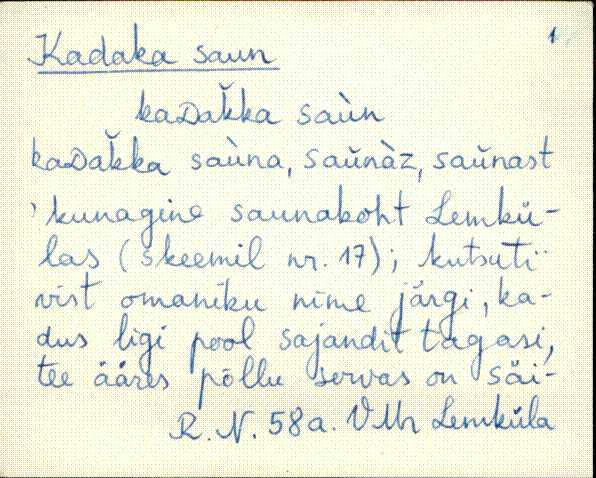 1
Kadaka saun
kaDak̆ka saùn
kaDak̆ka saùna, saŭnàz, saŭnast
'kunagine saunakoht Lemkü-
las (skeemil nr. 17); kutsuti
vist omaniku nime järgi, ka-
dus ligi pool sajandit tagasi,
tee ääres põllu servas on säi-
R. N. 58a. VMr Lemküla